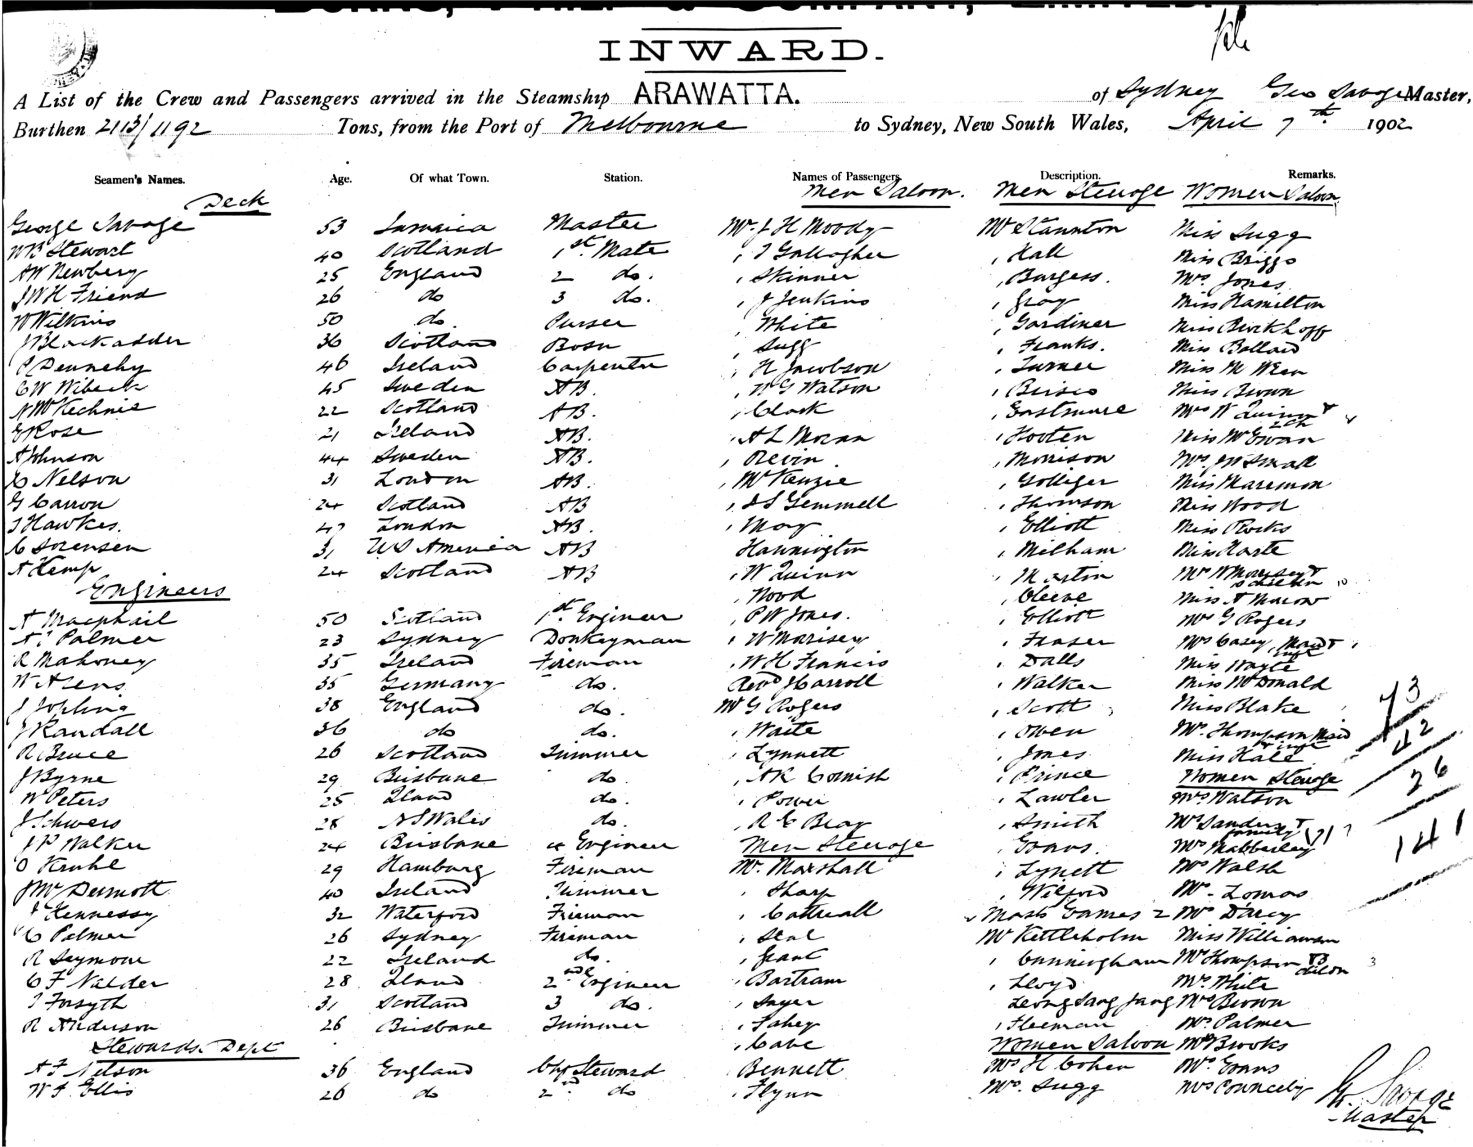 BURNS, PHILP & COMPANY, LIMITED.
INWARD.
A List of the Crew and Passengers arrived in the Steamship ARAWATTA. of Sydney Geo Savage Master,
Burthen 2113/1192 Tons, from the Port of Melbourne to Sydney, New South Wales, April 7th 1902
Seamen's Names. Age. Of what Town. Station. Names of Passengers. Description. Remarks.
Deck Men Saloon. Men Steerage Women Saloon
George Savage 53 Jamaica Master Mr J H Moody Mr Staunton Miss Sugg
W B Stewart 40 Scotland 1st Mate " T Gallagher " Hall Miss Briggs
A W Newbery 25 England 2 do. " Skinner " Burgess. Mrs Jones.
J W H Friend 26 do 3 do. " J Jenkins " Gray Miss Hamilton
W Wilkins 50 do. Purser " White " Gardiner Miss
J Blackadder 36 Scotland Bosn " Sugg " Franks. Miss Ballard
P Dennehy 46 Ireland Carpenter " H Jacobson " Turner Miss
C W 45 Sweden AB. " W G Watson " Miss Brown
N McKechnie 22 Scotland AB. " Clack " Eastmure Mrs W Quinn & 2 Ch
E Rose 21 Ireland AB. " A L Moran " Hooten Miss McEwan
A Johnson 44 Sweden AB. " " Morrison Mrs J W Small
C Nelson 31 London AB. " McKenzie " Golliger Miss
G Carron 24 Scotland AB " D S Gemmell " Thomson Miss Wood
T Hawkes. 47 London AB. " May " Elliott Miss
C Sorensen 31 U S America AB Hannington " Milham Miss Harte
A Kemp 24 Scotland AB " W Quinn " Martin Mrs W Morrisey &
Engineers " Wood " Cleeve Miss A Macow
A Macphail 50 Scotland 1st Engineer " P W Jones. " Elliott Mrs G Rogers
A. Palmer 23 Sydney Donkeyman " W Morisey " Fraser Mrs Casey, Maid &
R Mahoney 35 Ireland Fireman " W H Francis " Dalls Miss Wayte
W Ahens 35 Germany do. Revd J Carroll " Walker Miss McDonald
J Jopling 38 England do. Mr G Rogers " Scott Miss Blake
J Randall 36 do do. " Waite " Owen Mrs Thompson Maid
R Bruce 26 Scotland Trimmer " Lynnett " Jones Miss Hale
J Byrne 29 Brisbane do. " A R Cornish " Prince Women Steerage
W Peters 25 do. " Power " Lawler Mrs Watson
J Schwers 28 N S Wales do. " R E Bray " Smith Mrs Sanders & family
J P Walker 24 Brisbane 4 Engineer Men Steerage " Evans. Mrs Mabberley
O Kruhl 29 Hamburg Fireman Mr. Marshall " Lynett Mrs Walsh
J McDermott 40 Ireland Trimmer " Sharp " Wilford Mrs Lomas
J Hennessy 32 Waterford Fireman " Cattreall Mast Games 2 Mrs Darcy
C Palmer 26 Sydney Fireman " Seal Mr Kettleholm Miss Williamson
R Seymour 22 Ireland do. " Grant " Cunningham Mrs Thompson & 3
C F Nalder 28 2nd Engineer " Bartram " Lloyd Mrs White
T Forsyth 31 Scotland 3 do. " Sayer Mrs Brown
R Anderson 26 Brisbane Trimmer " Fahey " Fleeman Mrs Palmer
Stewards. Dept " Cave Women Saloon Mrs Brooks
A F Nelson 36 England Chf Steward Bennett Mrs H Cohen Mrs Evans
W F Ellis 26 do 2nd do " Flynn Mrs. Sugg Mrs Conneely
73
42
26
141
G. Savage
Master